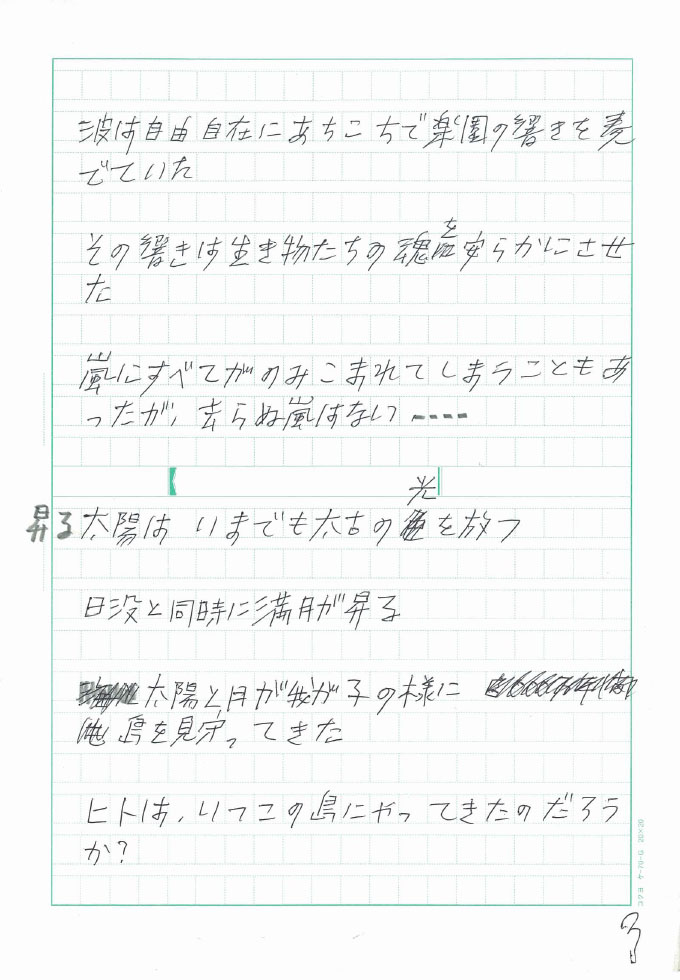 波は自由自在にあちこちで楽園の響きを奏
でていた
その響きは生き物たちの魂を安らかにさせ
た
嵐にすべてがのみこまれてしまうこともあ
ったが、去らぬ嵐はない----
光
昇る太陽は いまでも太古の を放つ
日没と同時に満月が昇る
太陽と月が我が子の様に
島を見守ってきた
ヒトは、いつこの島にやってきたのだろう
か?